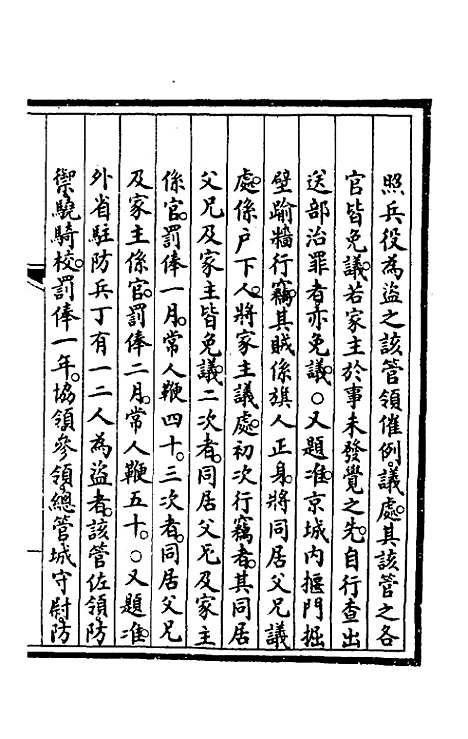 照兵役為盜之該管領催例議處其該管之各
官皆免議若家主於事未發覺之先自行查出
送部治罪者亦免議○又題准京城內揠門掘
壁踰牆行竊其賊係旗人正身將同居父兄議
處係戶下人將家主議處初次行竊者其同居
父兄及家主皆免議二次者同居父兄及家主
係官罰俸一月常人鞭四十三次者同居父兄
及家主係官罰俸二月常人鞭五十○又題准
外省駐防兵丁有一二人為盜者該管佐領防
禦驍騎校罰俸一年協領參領總管城守尉防